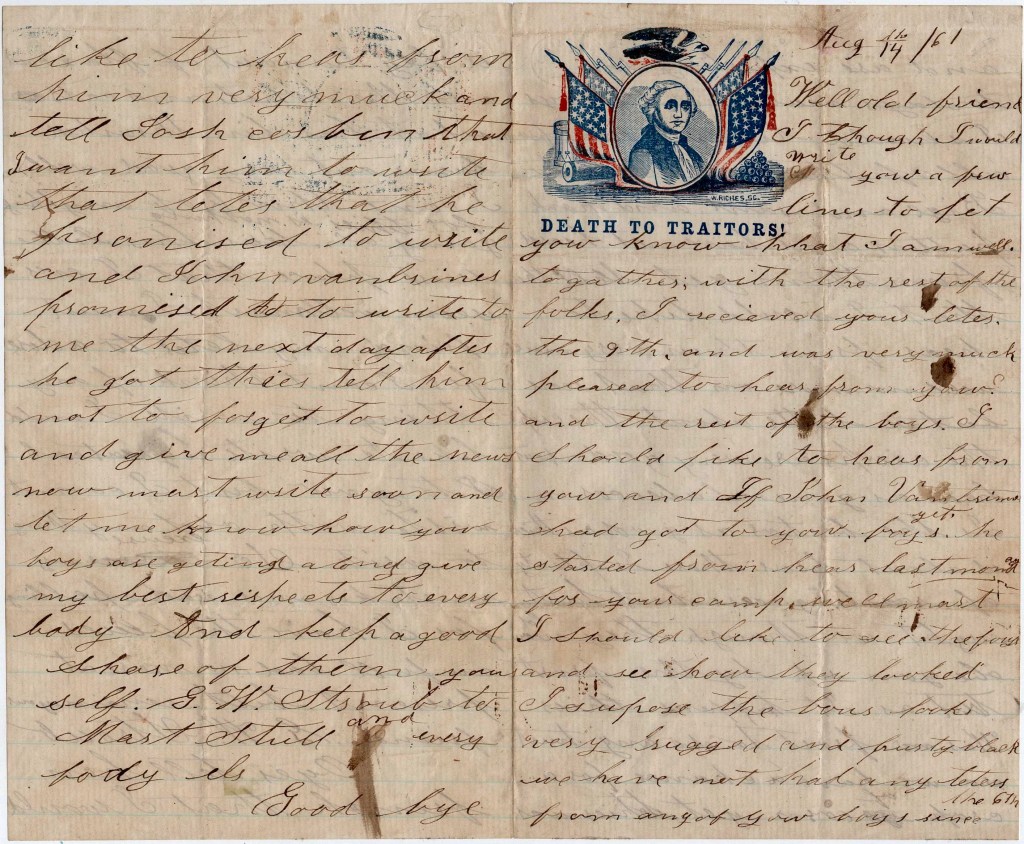 Aug 14th /61
Well old friend
I though I would
write
yow a few
lines to let
A. RICHES, SC.
DEATH TO TRAITORS!
yow know that I am well.
to gather, with the rest of the
folks. I recieved your leter.
the 9th. and was very much
pleased to hear from yow.
and the rest of the boys. I
should like to hear from
yow and If John Vanbrimer
had got to yow. boys. yet. he
started from hear last mond
for your camp. well mart
I should like to see the boys
and see how they looked
I supose the bous looks
very rugged and purty black
we have not had any leters
from any of yow boys since the 6th
like to hear from
him very much and
tell Josh cosbun that
I want him to write
that leter that he
promised to write
and John vanbrimer
promised to to write to
me the next day after
he got thier tell him
not to forget to write
and give me all the news
now mart write soon and
let me know how yow
boys are geting along give
my best respects to every
body And keep a good
share of them your
self. G. W. Stroub to
Mart Stull and every
body els
Good bye